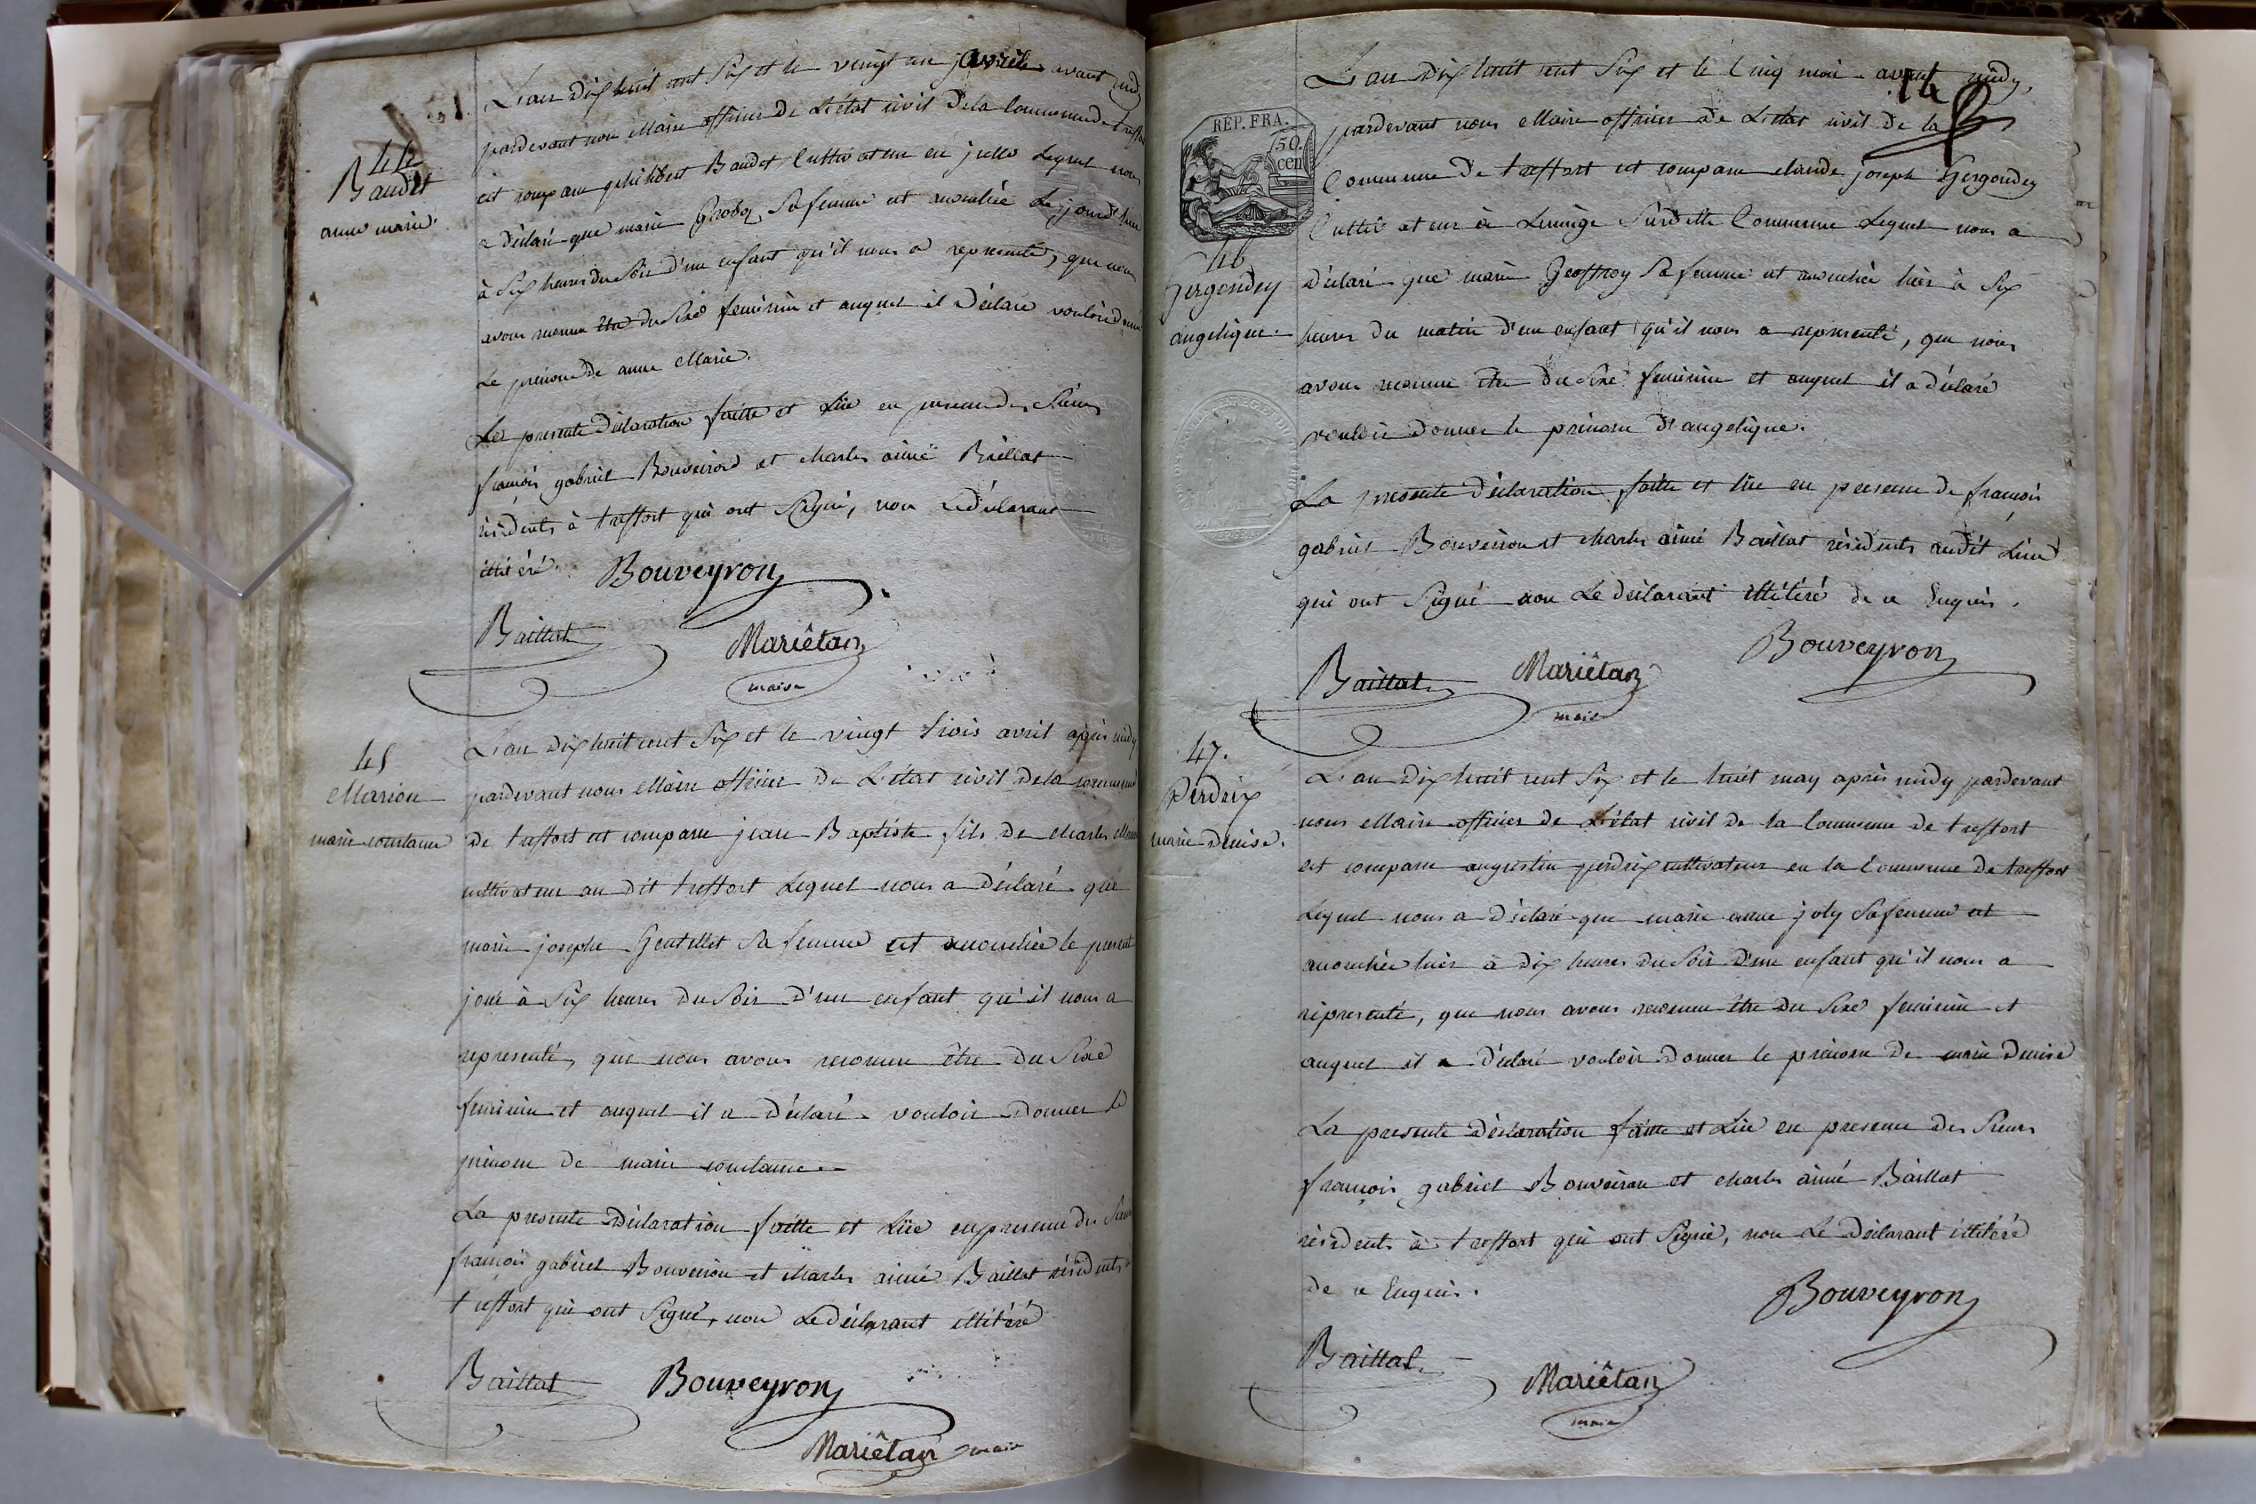 44
Baudet
anne marie.
L'an dix huit cent six et le vingt un avril avant midy
pardevant nous Maire officier de L'état civil de la Commune de treffort
est comparu philibert Baudet Cultivateur en Lequel nous
a déclaré que marie sa femme est acouchée Le jourd'hui
à six heures du soir d'un enfant qu'il nous a representé, que nous
avons reconnu être du sexe feminin et auquel il a Déclaré vouloir donner
Le prénom de anne Marie.
La presente Déclaration faitte et Lüe en presence des Sieurs
françois gabriel Bouveiron et charles aimé Baillat
résidents à treffort qui ont signé, non Le déclarant
illitéré.
Bouveyron
Baillat
Mariétan
maire
45
Marion
marie constance
L'an dix huit cent six et le vingt trois avril après midy
pardevant nous Maire officier de L'état civil de la commune
de treffort est comparu jean Baptiste fils de charles Marion
cultivateur au dit treffort Lequel nous a Déclaré que
marie josephe Gentillet sa femme est acouchée le present
jour à six heures du soir d'un enfant qu'il nous a
representé, que nous avons reconnu être du sexe
feminin et auquel il a Déclaré vouloir donner le
prénom de marie constance.
La presente Déclaration faitte et Lüe en presence des Sieurs
françois gabriel Bouveiron et charles aimé Baillat résidents à
treffort qui ont signé, non Le déclarant illitéré
Baillat
Bouveyron
Mariétan maire
REP. FRA.
50.
cen
46
Gergondey
angelique.
L'an dix huit cent six et le cinq mai avant midy,
pardevant nous Maire officier de L'état civil de la
Commune de treffort est comparu claude joseph Gergondey
Cultivateur à Lucinge sur dite Commune Lequel nous a
déclaré que marie Geoffroy sa femme est acouchée hier à six
heures du matin d'un enfant qu'il nous a representé, que nous
avons reconnu être du sexe feminin et auquel il a déclaré
vouloir donner le prénom d'angelique.
La presente déclaration faitte et lüe en presence de françois
gabriel Bouveiron et charles aimé Baillat résidents au dit Lieu
qui ont signé non Le déclarant illitéré de ce Enquis.
Bouveyron
Baillat
Mariétan
maire
47.
Perdrix
marie denise.
L'an dix huit cent six et le huit may après midy pardevant
nous Maire officier de L'état civil de la Commune de treffort
est comparu augustin perdrix cultivateur en la Commune de treffort
Lequel nous a déclaré que marie anne joly sa femme est
acouchée hier à dix heures du soir d'un enfant qu'il nous a
representé, que nous avons reconnu être du sexe feminin et
auquel il a déclaré vouloir donner le prénom de marie denise
La presente déclaration faitte et Lüe en presence des Sieurs
françois gabriel Bouveiron et charles aimé Baillat
résidents à treffort qui ont signé, non Le déclarant illitéré
de ce Enquis.
Bouveyron
Baillat
Mariétan
maire